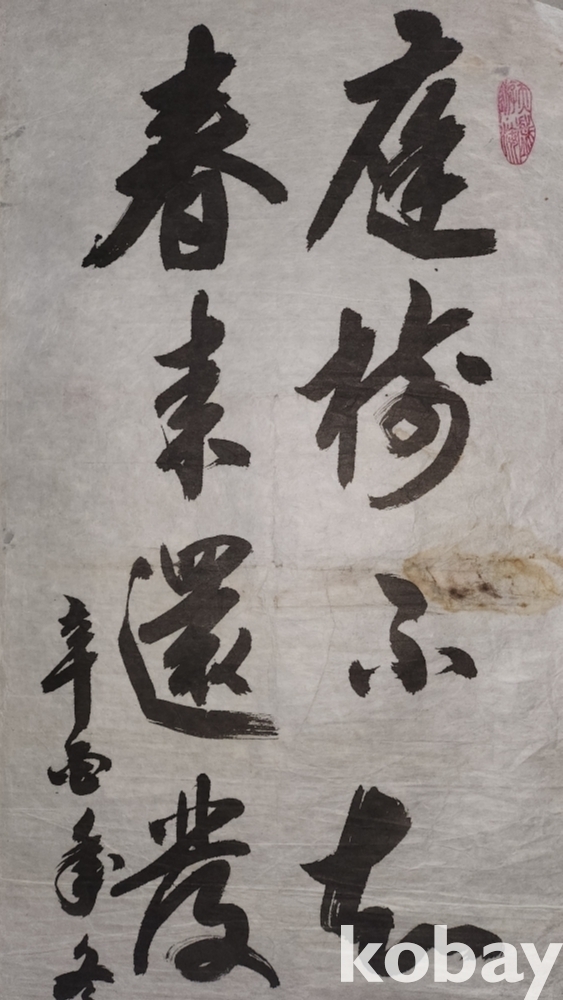 庭樹不知
春来還發
辛酉年冬
kobay